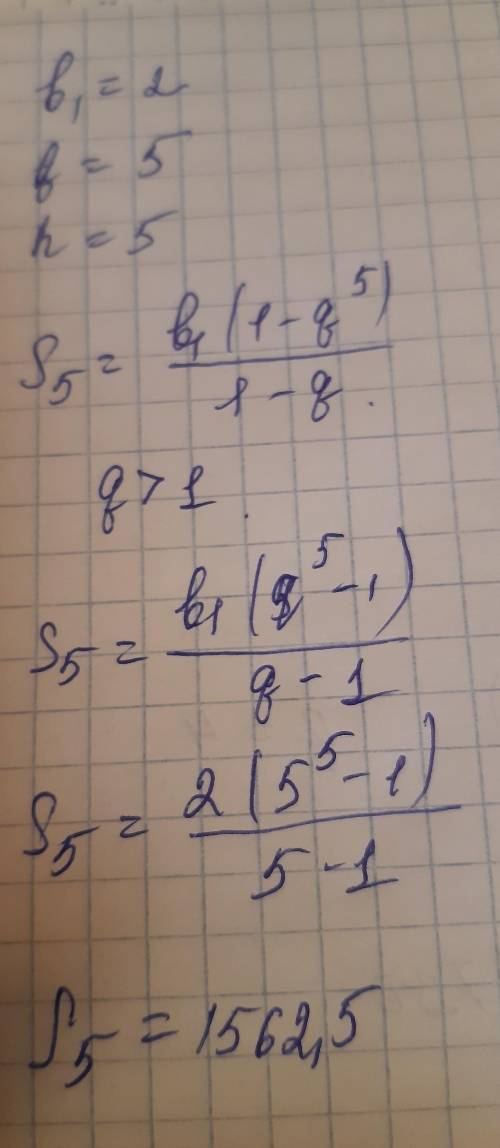 b₁ = 2
q = 5
n = 5
S₅ = b₁(1 - q⁵) / 1 - q.
q > 1.
S₅ = b₁(q⁵ - 1) / q - 1
S₅ = 2(5⁵ - 1) / 5 - 1
S₅ = 1562,5